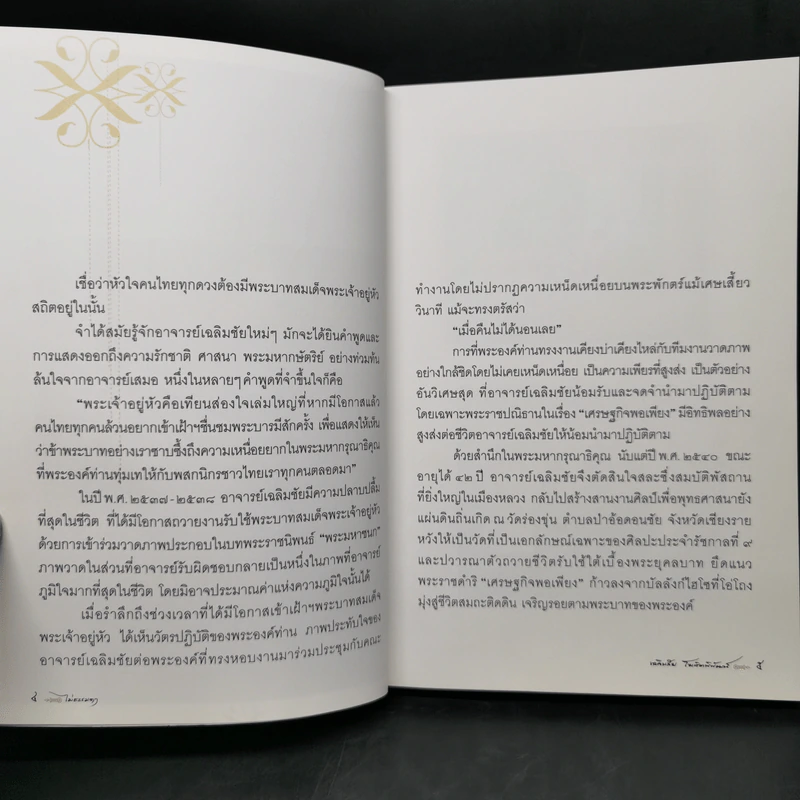 เชื่อว่าหัวใจคนไทยทุกดวงต้องมีพระบาทสมเด็จพระเจ้าอยู่หัว
สถิตอยู่ในนั้น
จำได้สมัยรู้จักอาจารย์เฉลิมชัยใหม่ๆ มักจะได้ยินคำพูดและ
การแสดงออกถึงความรักชาติ ศาสนา พระมหากษัตริย์ อย่างท่วมท้น
ล้นใจจากอาจารย์เสมอ หนึ่งในหลายๆคำพูดที่จำขึ้นใจก็คือ
“พระเจ้าอยู่หัวคือเทียนส่องใจเล่มใหญ่ที่หากมีโอกาสแล้ว
คนไทยทุกคนล้วนอยากเข้าเฝ้าฯชื่นชมพระบารมีสักครั้ง เพื่อแสดงให้เห็น
ว่าข้าพระบาทอย่างเราซาบซึ้งถึงความเหนื่อยยากในพระมหากรุณาธิคุณ
ที่พระองค์ท่านทุ่มเทให้กับพสกนิกรชาวไทยเราทุกคนตลอดมา”
ในปี พ.ศ. ๒๕๓๗-๒๕๓๘ อาจารย์เฉลิมชัยมีความปลาบปลื้ม
ที่สุดในชีวิต ที่ได้มีโอกาสถวายงานรับใช้พระบาทสมเด็จพระเจ้าอยู่หัว
ด้วยการเข้าร่วมวาดภาพประกอบในบทพระราชนิพนธ์ “พระมหาชนก”
ภาพวาดในส่วนที่อาจารย์รับผิดชอบกลายเป็นหนึ่งในภาพที่อาจารย์
ภูมิใจมากที่สุดในชีวิต โดยมิอาจประมาณค่าแห่งความภูมิใจนั้นได้
เมื่อรำลึกถึงช่วงเวลาที่ได้มีโอกาสเข้าเฝ้าฯพระบาทสมเด็จ
พระเจ้าอยู่หัว ได้เห็นวัตรปฏิบัติของพระองค์ท่าน ภาพประทับใจของ
อาจารย์เฉลิมชัยต่อพระองค์ที่ทรงหอบงานมาร่วมประชุมกับคณะ
๔ ไม่ธรรมดา
ทำงานโดยไม่ปรากฏความเหน็ดเหนื่อยบนพระพักตร์แม้เศษเสี้ยว
วินาที แม้จะทรงตรัสว่า
“เมื่อคืนไม่ได้นอนเลย”
การที่พระองค์ท่านทรงงานเคียงบ่าเคียงไหล่กับทีมงานวาดภาพ
อย่างใกล้ชิดโดยไม่เคยเหน็ดเหนื่อย เป็นความเพียรที่สูงส่ง เป็นตัวอย่าง
อันวิเศษสุด ที่อาจารย์เฉลิมชัยน้อมรับและจดจำนำมาปฏิบัติตาม
โดยเฉพาะพระราชปณิธานในเรื่อง “เศรษฐกิจพอเพียง” มีอิทธิพลอย่าง
สูงส่งต่อชีวิตอาจารย์เฉลิมชัยให้น้อมนำมาปฏิบัติตาม
ด้วยสำนึกในพระมหากรุณาธิคุณ นับแต่ปี พ.ศ. ๒๕๔๐ ขณะ
อายุได้ ๔๒ ปี อาจารย์เฉลิมชัยจึงตัดสินใจสละซึ่งสมบัติพัสถาน
ที่ยิ่งใหญ่ในเมืองหลวง กลับไปสร้างสานงานศิลป์เพื่อพุทธศาสนายัง
แผ่นดินถิ่นเกิด ณ วัดร่องขุ่น ตำบลป่าอ้อดอนชัย จังหวัดเชียงราย
หวังให้เป็นวัดที่เป็นเอกลักษณ์เฉพาะของศิลปะประจำรัชกาลที่ ๙
และปวารณาตัวถวายชีวิตรับใช้ใต้เบื้องพระยุคลบาท ยึดแนว
พระราชดำริ “เศรษฐกิจพอเพียง” ก้าวลงจากบัลลังก์ไฮโซที่โอโถง
มุ่งสู่ชีวิตสมถะติดดิน เจริญรอยตามพระบาทของพระองค์
เฉลิมชัย โฆษิตพิพัฒน์ ๕